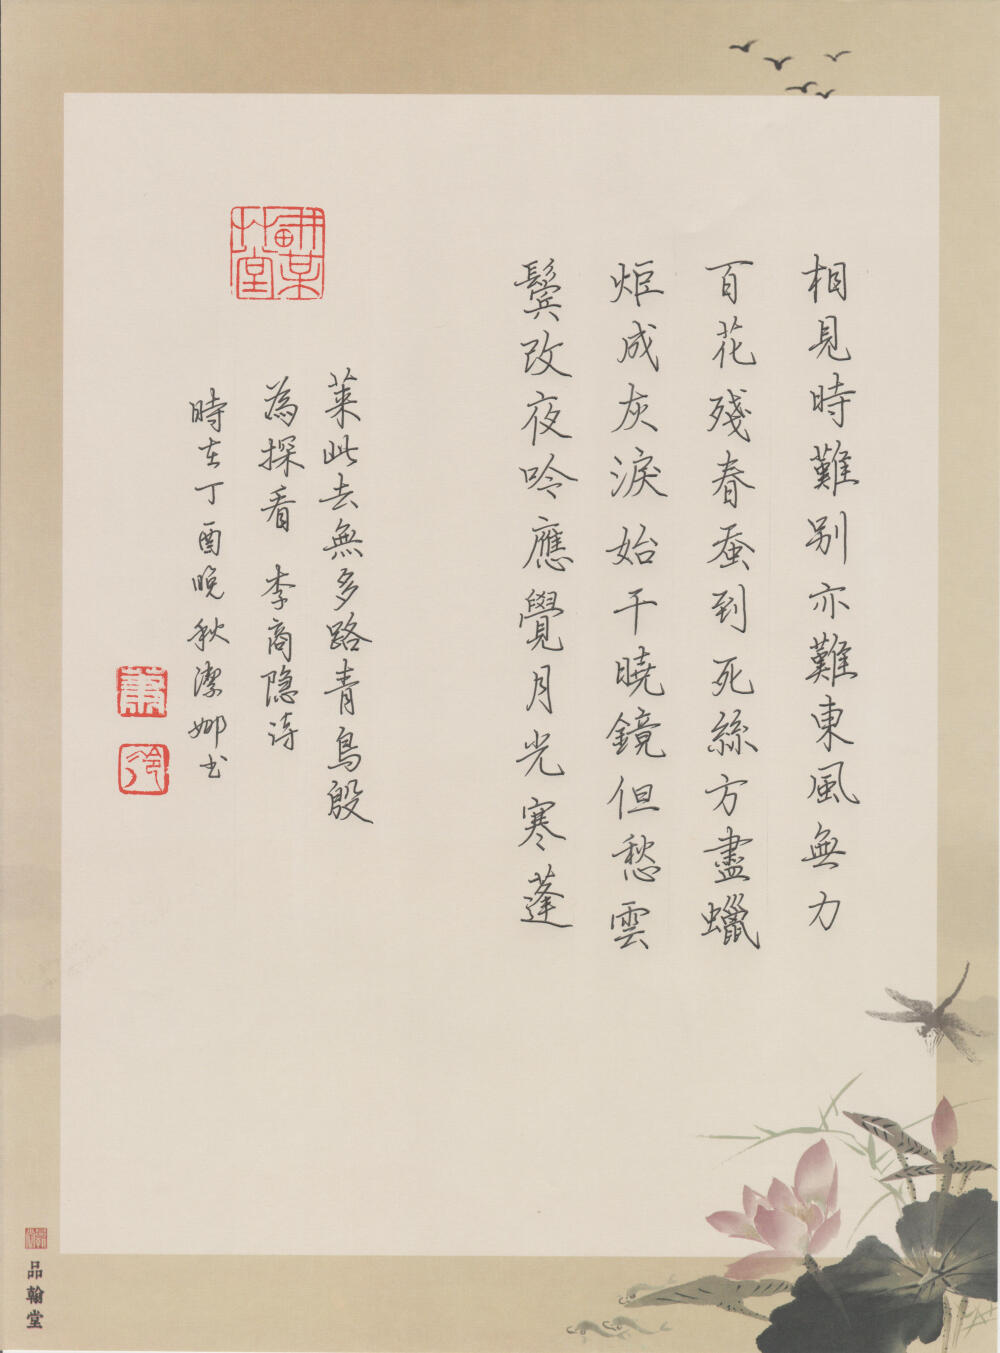 相見時難别亦難東風無力
百花殘春蚕到死絲方盡蠟
炬成灰淚始干曉鏡但愁雲
鬓改夜吟應覺月光寒蓬
莱此去無多路青鳥殷
為探看 李商隐诗
時在丁酉晚秋潔娜书
品翰堂